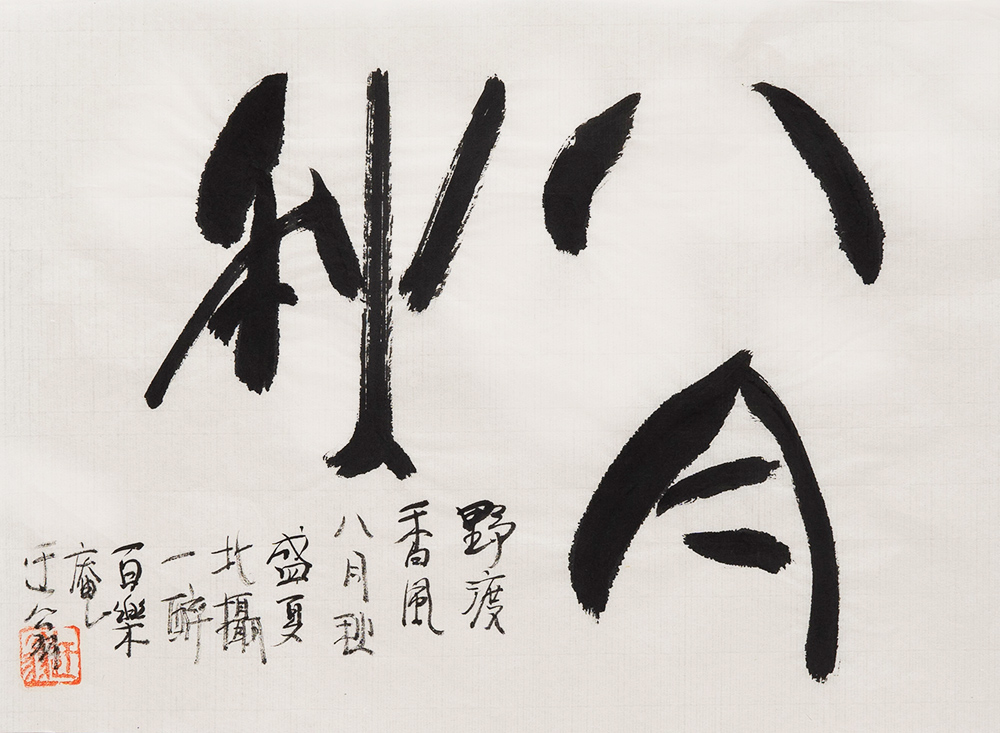 八月
秋
野渡
香風
八月秋
盛夏
北攝
一醉
百樂
庵
迂翁